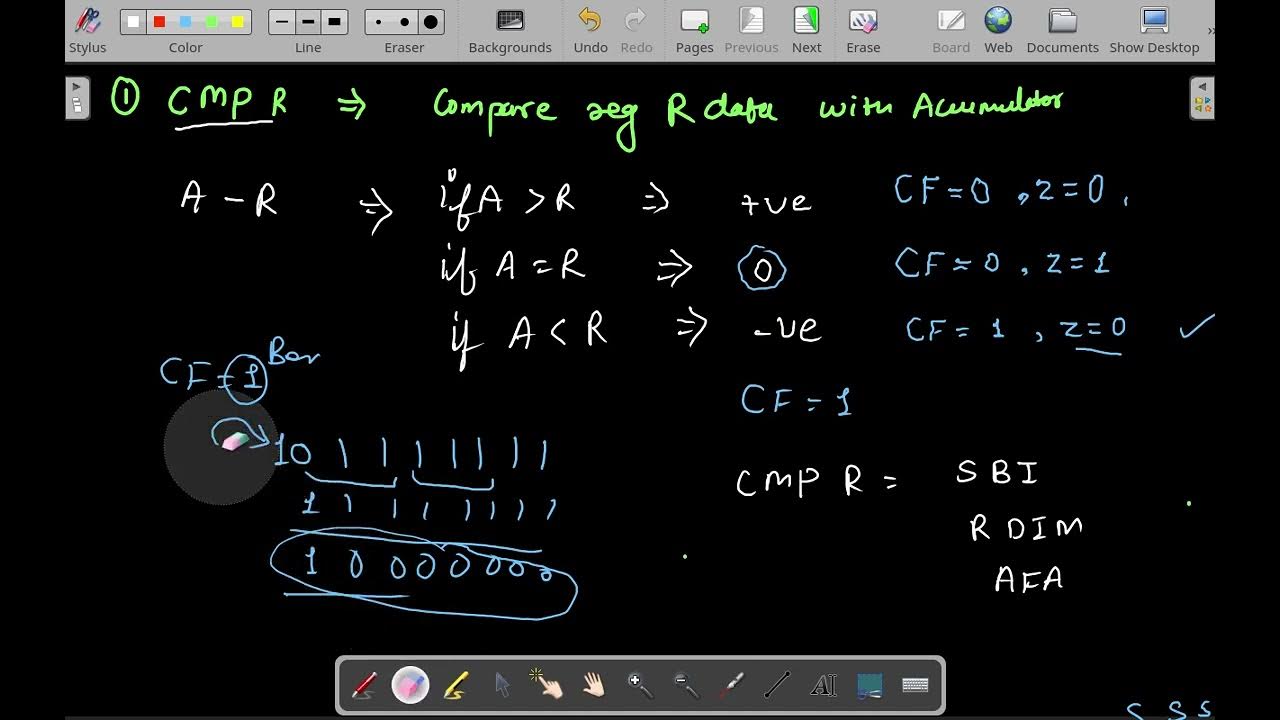 Stylus Color Line Eraser Backgrounds Undo Redo Pages Previous Next Erase Board Web Documents Show Desktop
① CMP R ⇒ Compare reg R data with Accumulator
A - R ⇒ if A > R ⇒ +ve CF = 0 , z = 0 ,
if A = R ⇒ 0 CF = 0 , z = 1
if A < R ⇒ -ve CF = 1 , z = 0 ✓
CF = 1 Bor
CF = 1
1 0 1 1 1 1 1 1 1
1 1 1 1 1 1 1 1
1 0 0 0 0 0 0 0
CMP R = SBI
R DIM
AFA
S S S